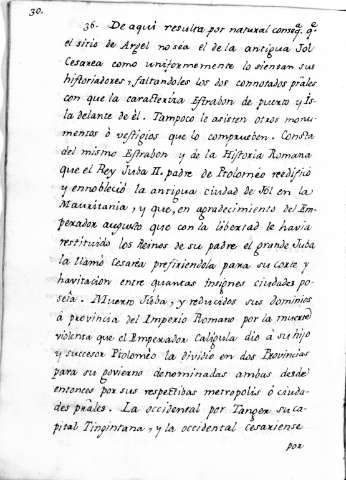 30.
36. De aqui resulta por natural conseq.ª q.e
el sitio de Argel no sea el de la antigua Jol
Cesarea como uniformemente lo sientan sus
historiadores, faltandoles los dos connotados p̃ales
con que la caracteriza Estrabon de puerto y Is-
la delante de èl. Tampoco le asisten otros monu-
mentos ò vestigios que lo comprueben. Consta
del mismo Estrabon y de la Historia Romana
que el Rey Juba II. padre de Ptolomèo reedificò
y ennobleciò la antigua ciudad de Jol en la
Mauritania, y que, en agradecimiento del Em-
perador augusto que con la libertad le havia
restituido los Reinos de su padre el grande Juba
la llamò Cesarea prefiriendola para su corte y
havitacion entre quantas insignes ciudades po-
seìa. Muerto Juba, y reducidos sus dominios
à provincia del Imperio Romano por la muerte
violenta que el Emperador Caligula diò à su hijo
y successor Ptolomèo la dividiò en dos Provincias
para su govierno denominadas ambas desde
entonces por sus respectibas metropolis ò ciuda-
des p̃rales. La occidental por Tanger su ca-
pital Tingintana, y la occidental cesariense
por